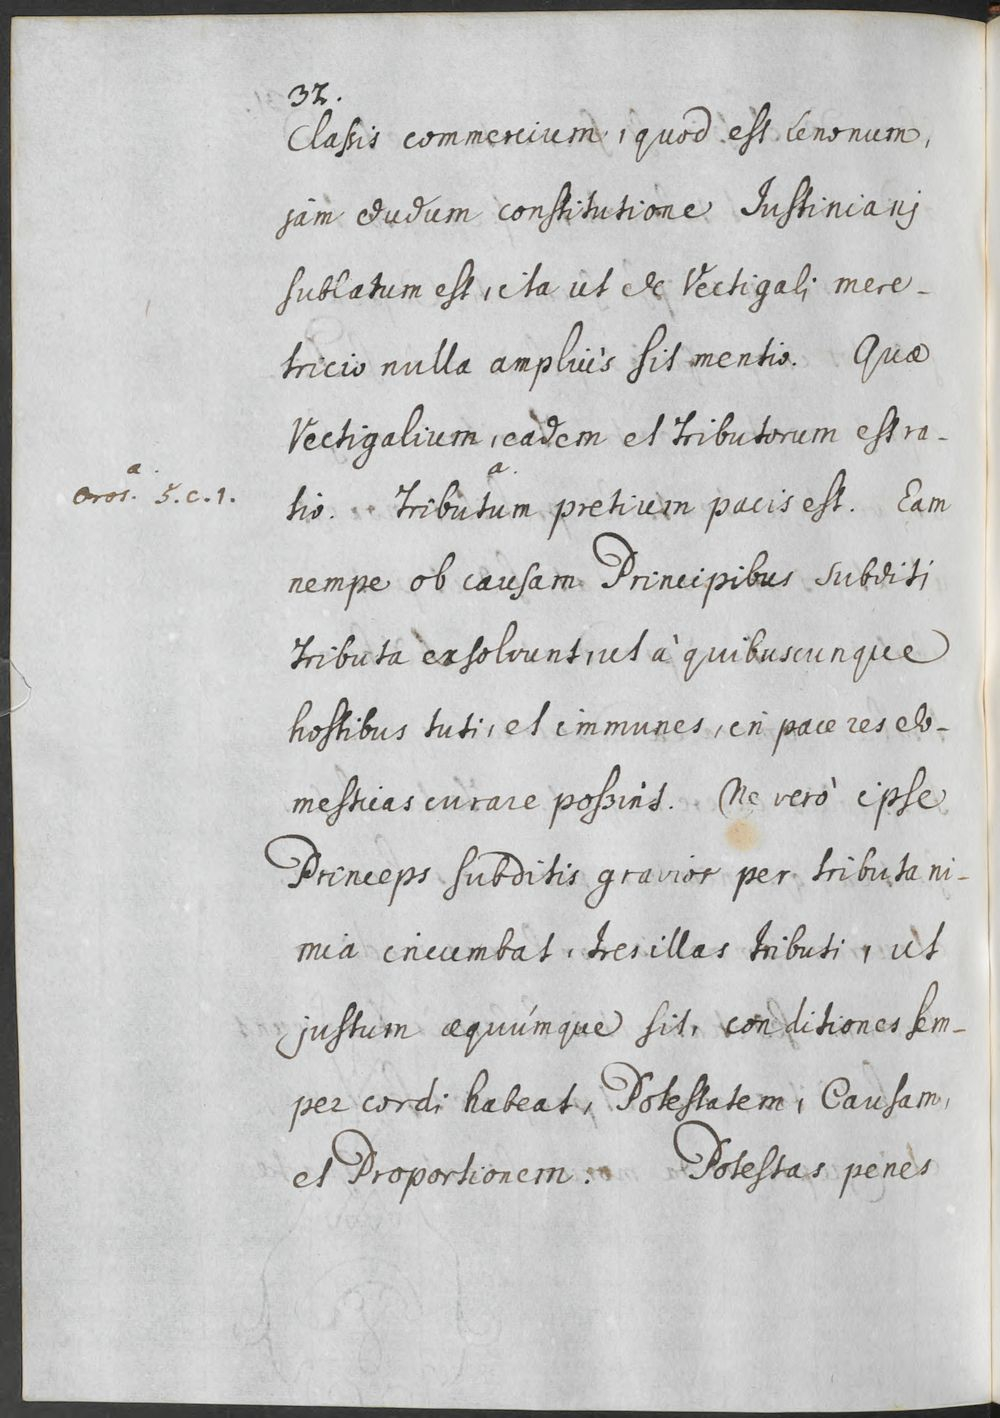 32.
Claßis commercium, quod est Lenonum,
jàm dudum constitutione Justinianj
sublatum est, ita ut de Vectigali mere-
tricio nulla ampliùs sit mentio. Quæ
Vectigalium, eadem et tributorum est ra-
a.
Oros. 5. c. 1.
a.
tio. Tributum pretium pacis est. Eam
nempe ob causam Principibus subditi
tributa exsolvunt, ut à quibuscunque
hostibus tuti, et immunes, in pace res do-
mesticas curare poßint. Ne verò ipse
Princeps subditis gravior per tributa ni-
mia incumbat, tres illas tributi, ut
justum æquúmque sit, conditiones sem-
per cordi habeat, Potestatem, Causam,
et Proportionem. Potestas penes